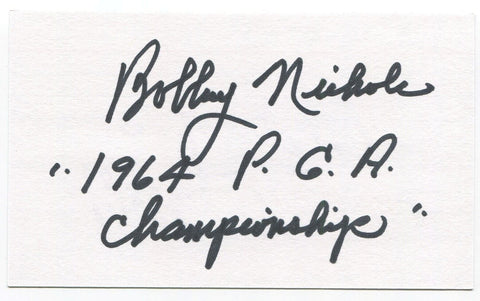 Bobby Nichols
"1964 P.G.A.
Championship"